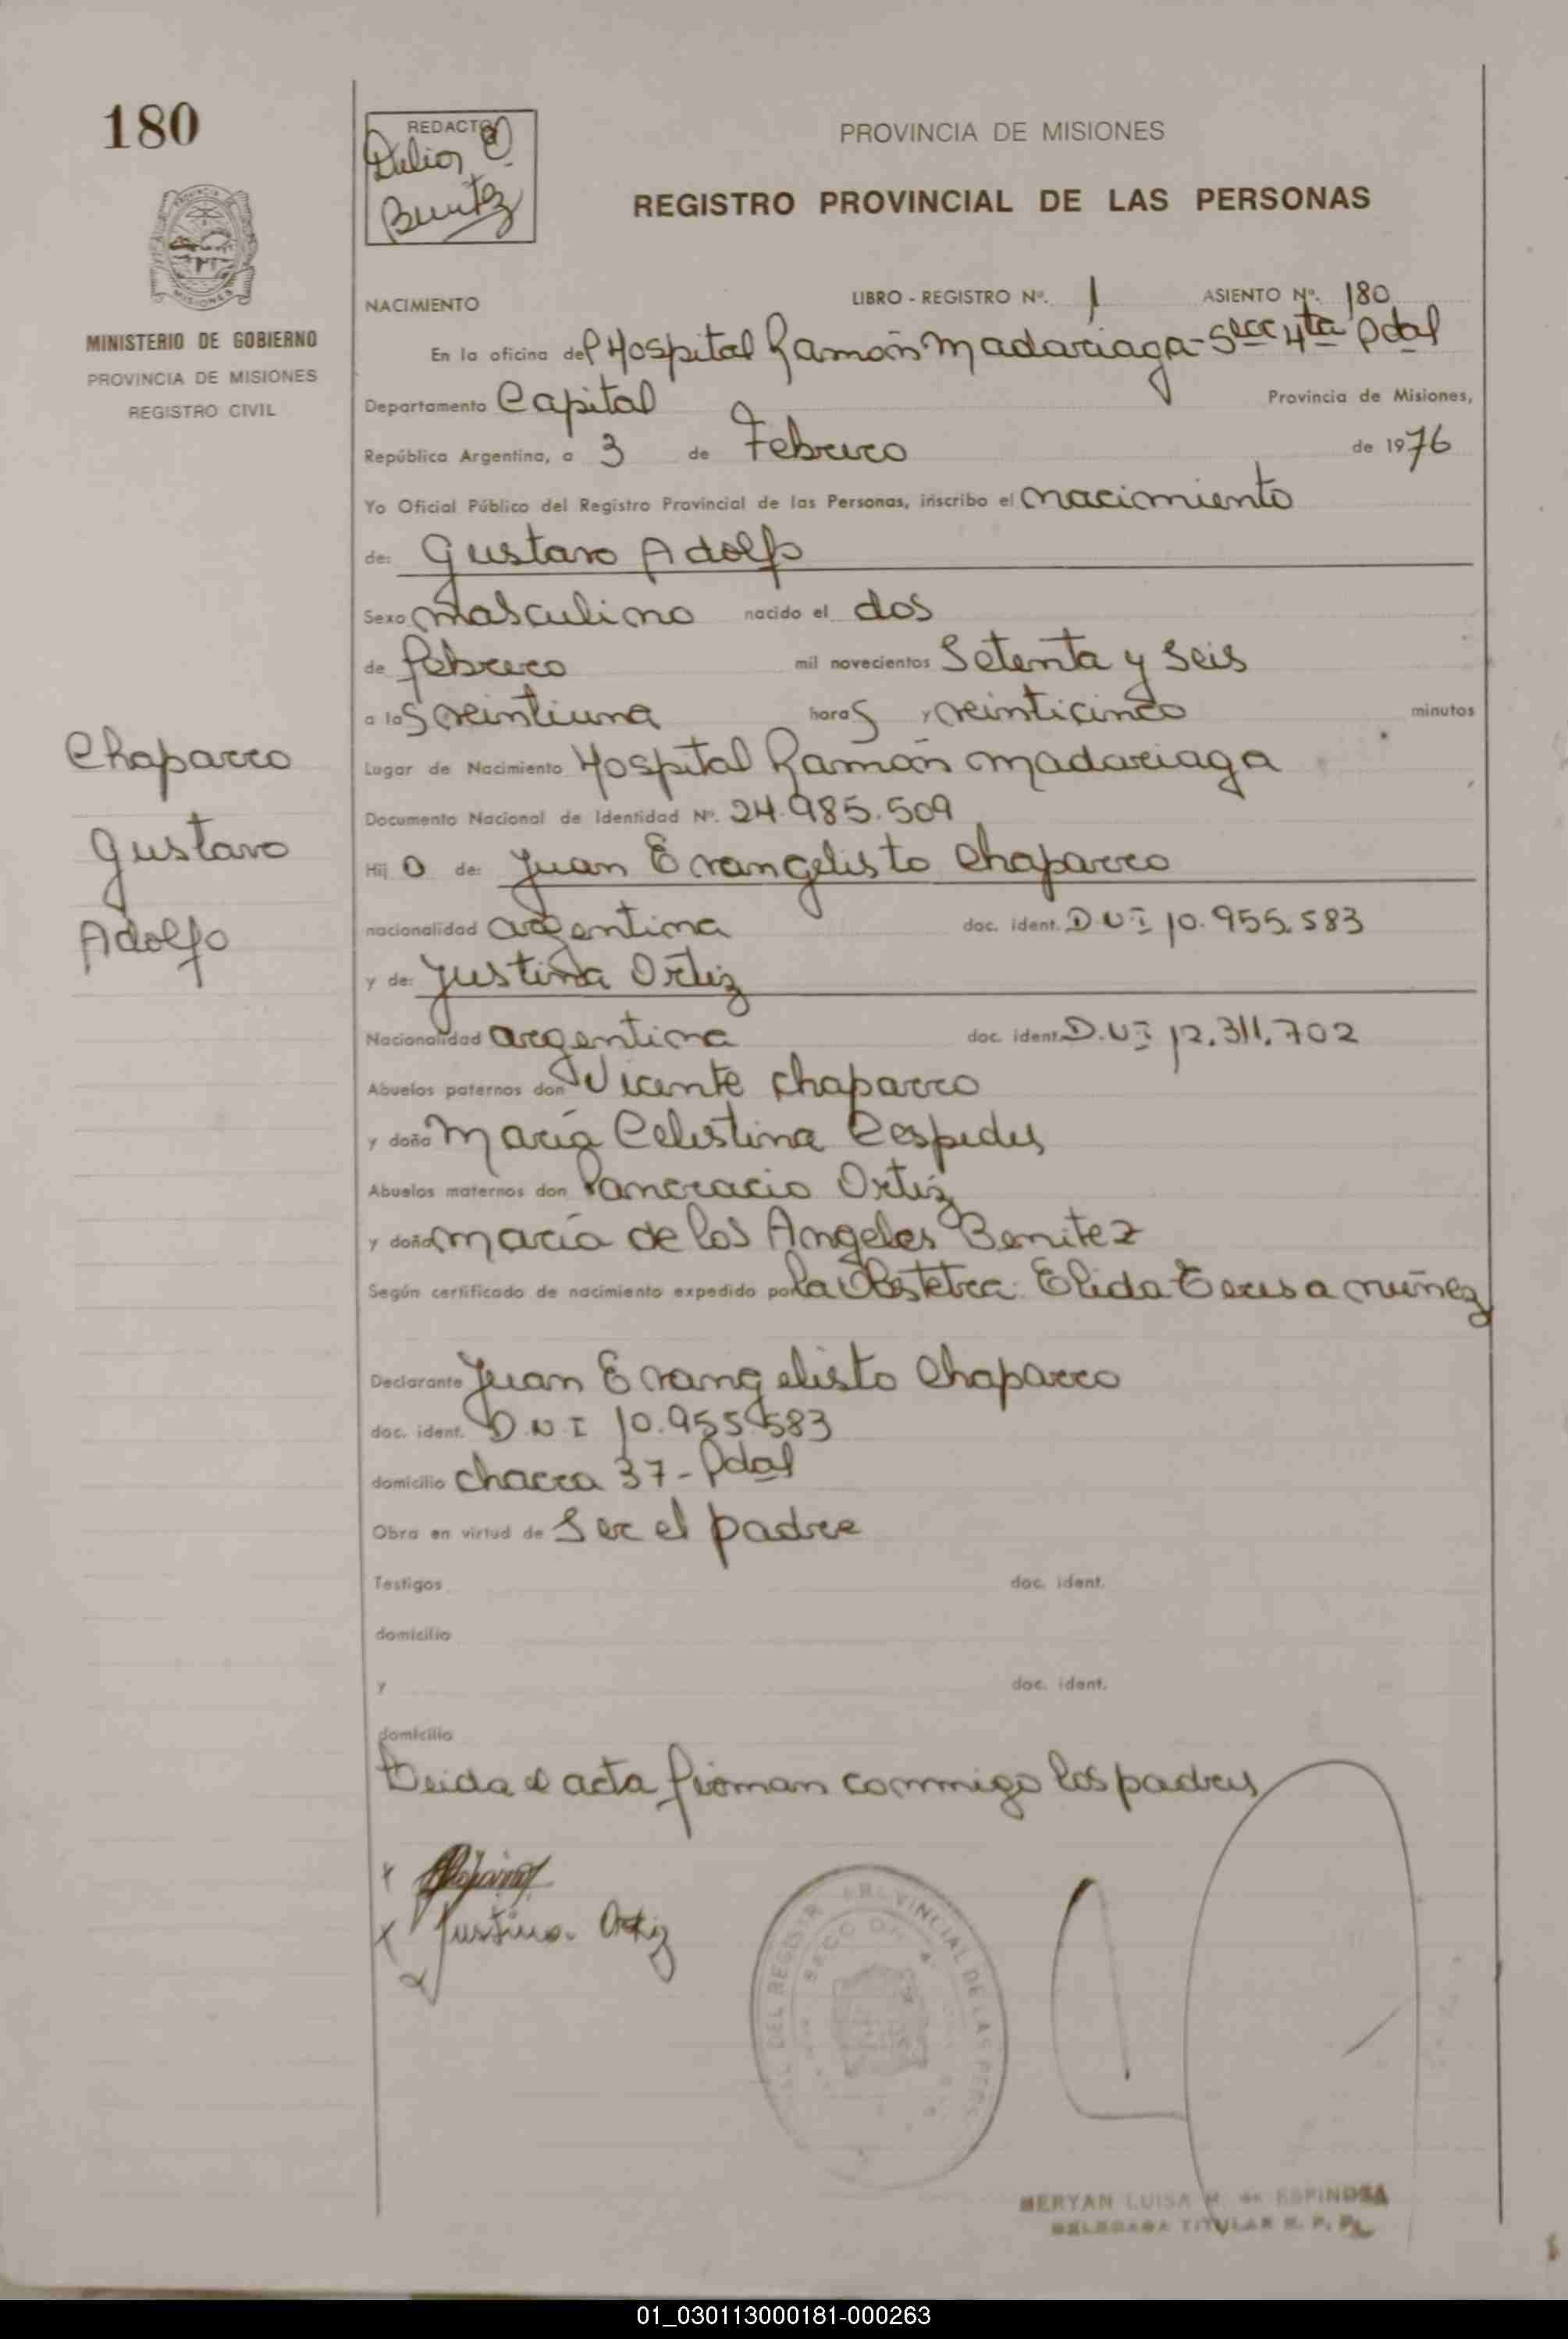 180
MINISTERIO DE GOBIERNO
PROVINCIA DE MISIONES
REGISTRO CIVIL
Chaparro
Gustavo
Adolfo
REDACTOR
Benitez
PROVINCIA DE MISIONES
REGISTRO PROVINCIAL DE LAS PERSONAS
NACIMIENTO LIBRO - REGISTRO Nº. 1 ASIENTO Nº. 180
En la oficina del Hospital Ramón Madariaga - Secc 4ta Pdas
Departamento Capital Provincia de Misiones,
República Argentina, a 3 de Febrero de 1976
Yo Oficial Público del Registro Provincial de las Personas, inscribo el nacimiento
de: Gustavo Adolfo
Sexo masculino nacido el dos
de febrero mil novecientos Setenta y seis
a las veintiuna horas y veinticinco minutos
Lugar de Nacimiento Hospital Ramón Madariaga
Documento Nacional de Identidad Nº. 24.985.509
Hijo de: Juan Evangelisto Chaparro
nacionalidad argentina doc. ident. DNI 10.955.583
y de: Justina Ortiz
Nacionalidad argentina doc. ident. D.NI 12.311.702
Abuelos paternos don Vicente Chaparro
y doña María Celestina Cespedes
Abuelos maternos don Pancracio Ortiz
y doña María de los Angeles Benitez
Según certificado de nacimiento expedido por la Obstetra: Elida Teresa Nuñez
Declarante Juan Evangelisto Chaparro
doc. ident. D.N.I 10.955.583
domicilio Chacra 37 - Pdas
Obra en virtud de Ser el padre
Testigos doc. ident.
domicilio
y doc. ident.
domicilio
Leida el acta firman conmigo los padres
Justina Ortiz
DEL REGISTRO PROVINCIAL DE LAS PERS
MERYAN LUISA M. de ESPINOSA
DELEGADA TITULAR R. P. P.
01_030113000181-000263